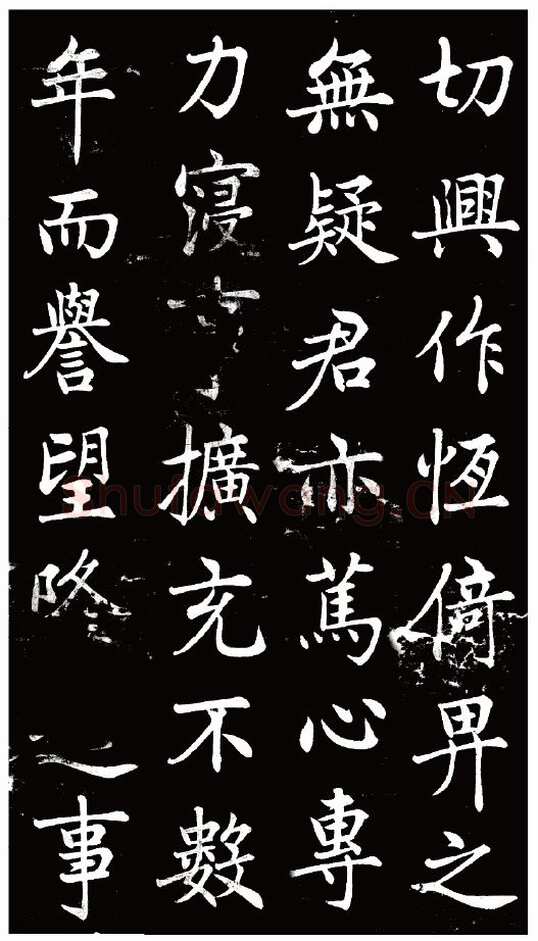 切興作恆倚畀之
無疑君亦篤心專
力寖擴充不數
年而譽望隆之事
shufawang.CN